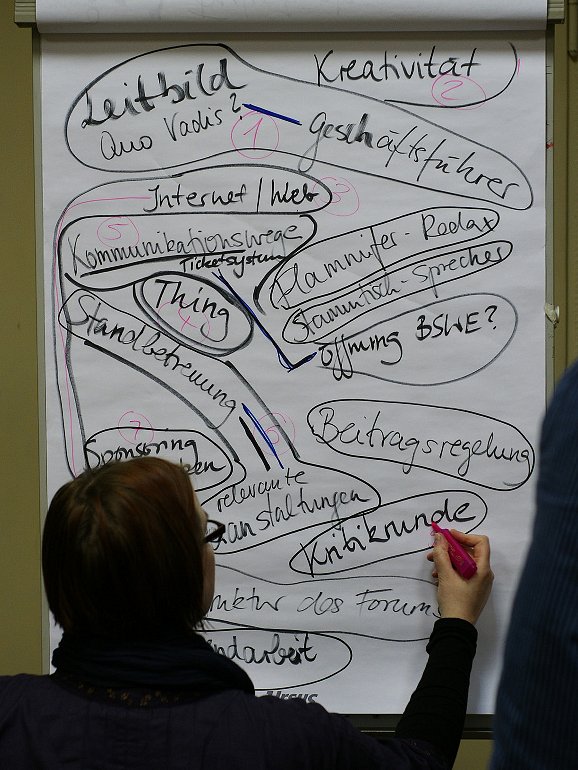 Kreativität
2
Leitbild
Quo Vadis?
1
Geschäftsführer
Internet / Web
3
5
Kommunikationswege
Ticketsystem
Plannifer - Rodax
Stammtisch - Sprecher
Thing
4
Öffnung BSWE?
Standbetreuung
6
Beitragsregelung
7
Sponsoring
relevante
anstaltungen
Kritikrunde
ruktur des Forums
ndarbeit